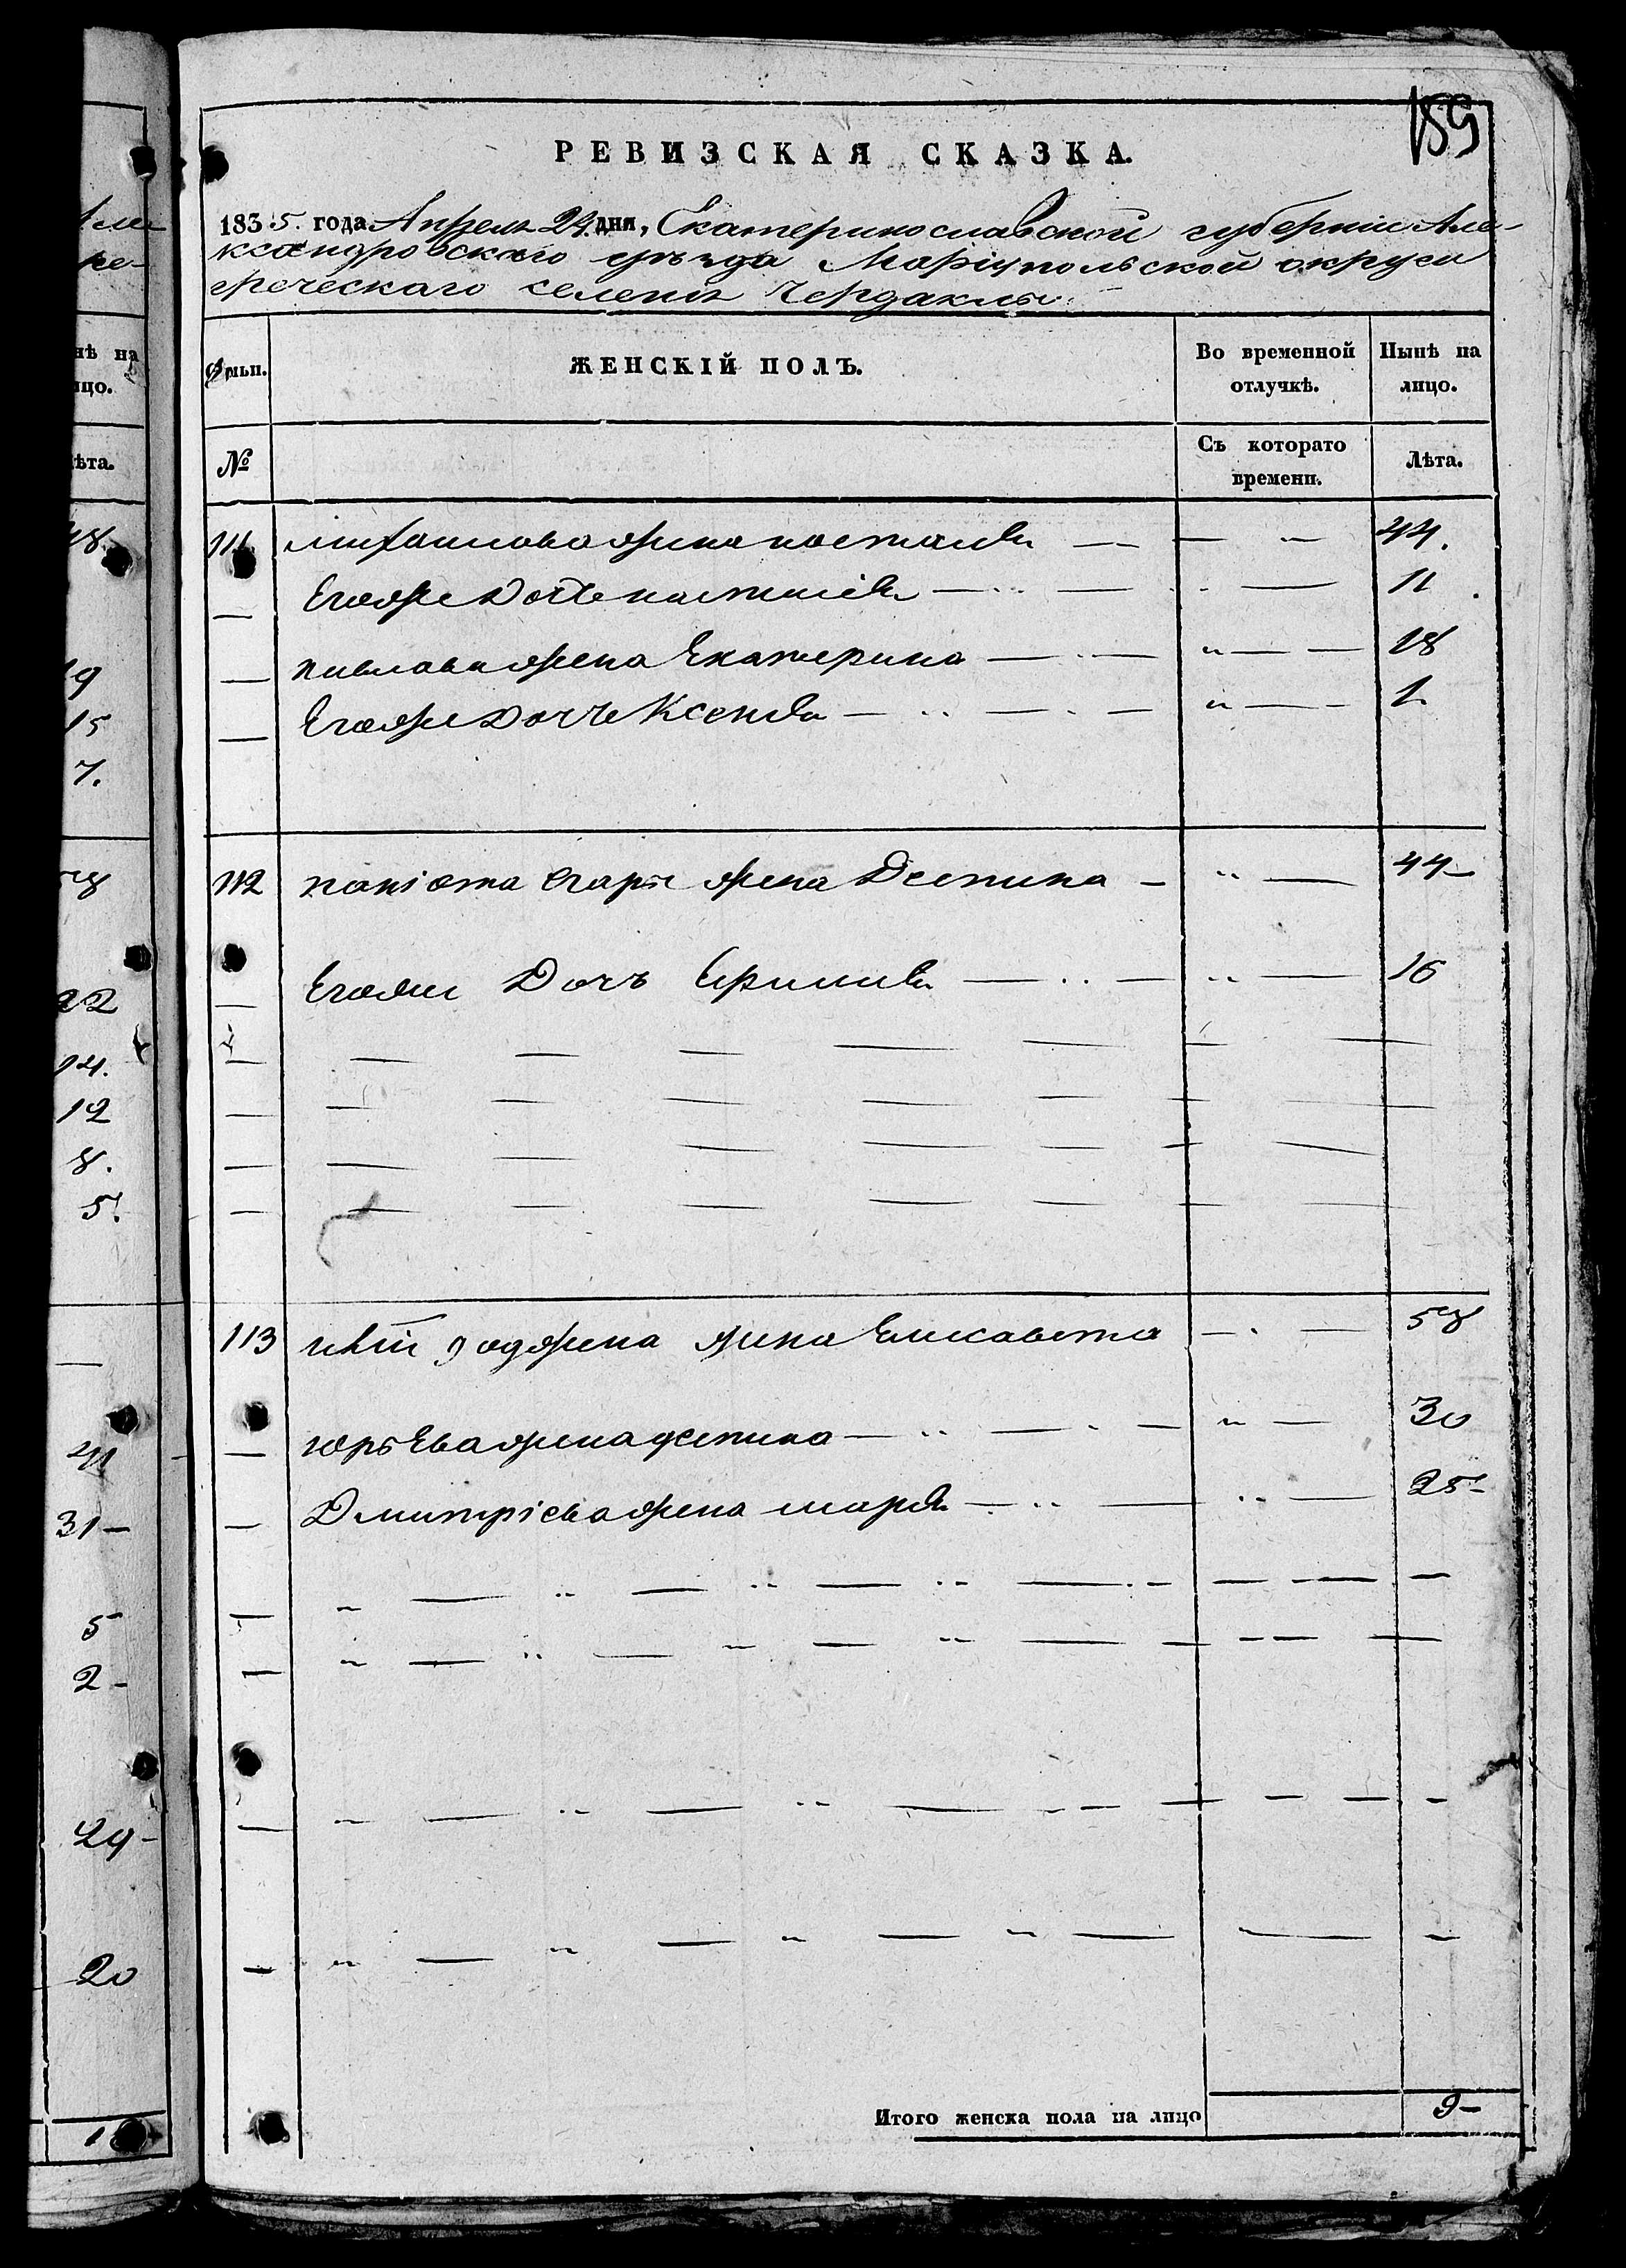 189
РЕВИЗСКАЯ СКАЗКА.
1835 года Апреля 24 дня, Екатеринославской губернiи Але-
ксандровского уѣзда Марiупольской округи
греческаго селенiя Чердаклы
Фамьи. ЖЕНСКIЙ ПОЛЪ. Во временной отлучкѣ. Нынѣ на лицо.
№ Съ которато времени. Лѣта.
111 Михаилова жена 44.
Егоже дочь 11
Павлова жена Екатерина 18
Егоже дочь Ксенiя 1
112 Панiота жена Деспина 44
Егоже Дочь 16
113 жена Елисавета 58
Юрьева жена деспина 30
Дмитрiева жена марiя 25
Итого женска пола на лицо 9
нѣ на
ицо.
ѣта.
48
19
15
7.
22
14.
12
8.
5.
41
31
5
2
29
20